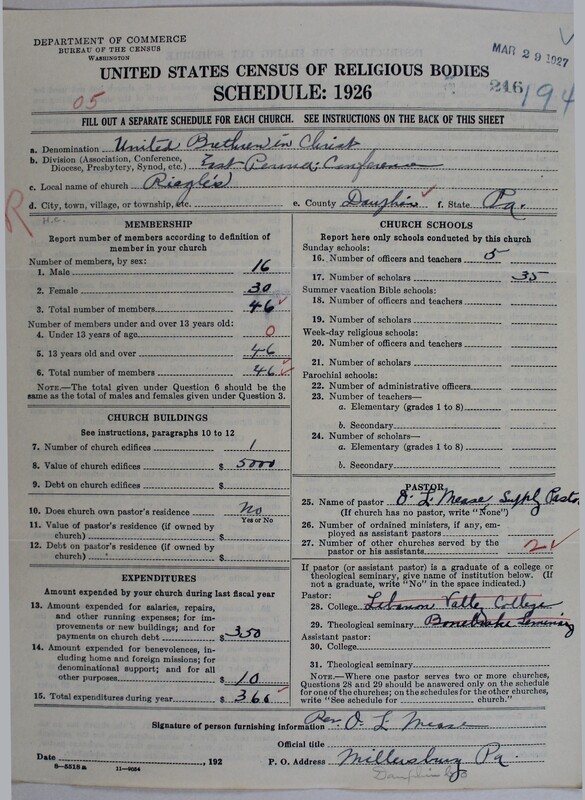 DEPARTMENT OF COMMERCE
BUREAU OF THE CENSUS
WASHINGTON
MAR 29 1927
UNITED STATES CENSUS OF RELIGIOUS BODIES
SCHEDULE: 1926
05
216
194
FILL OUT A SEPARATE SCHEDULE FOR EACH CHURCH. SEE INSTRUCTIONS ON THE BACK OF THIS SHEET
a. Denomination United Brethren in Christ
b. Division (Association, Conference, Diocese, Presbytery, Synod, etc.) East Penna; Conference
c. Local name of church Riegle's
d. City, town, village, or township, etc. e. County Dauphin f. State Pa.
R
MEMBERSHIP
Report number of members according to definition of member in your church
Number of members, by sex:
1. Male 16
2. Female 30
3. Total number of members 46
Number of members under and over 13 years old:
4. Under 13 years of age 0
5. 13 years old and over 46
6. Total number of members 46
NOTE.—The total given under Question 6 should be the same as the total of males and females given under Question 3.
CHURCH BUILDINGS
See instructions, paragraphs 10 to 12
7. Number of church edifices 1
8. Value of church edifices $ 5000
9. Debt on church edifices $
10. Does church own pastor's residence No
Yes or No
11. Value of pastor's residence (if owned by church) $
12. Debt on pastor's residence (if owned by church) $
EXPENDITURES
Amount expended by your church during last fiscal year
13. Amount expended for salaries, repairs, and other running expenses; for improvements or new buildings; and for payments on church debt $ 350
14. Amount expended for benevolences, including home and foreign missions; for denominational support; and for all other purposes $ 10
15. Total expenditures during year $ 366
CHURCH SCHOOLS
Report here only schools conducted by this church
Sunday schools:
16. Number of officers and teachers 5
17. Number of scholars 35
Summer vacation Bible schools:
18. Number of officers and teachers
19. Number of scholars
Week-day religious schools:
20. Number of officers and teachers
21. Number of scholars
Parochial schools:
22. Number of administrative officers
23. Number of teachers—
a. Elementary (grades 1 to 8)
b. Secondary
24. Number of scholars—
a. Elementary (grades 1 to 8)
b. Secondary
PASTOR
25. Name of pastor O. L. Mease, Supply Pastor
(If church has no pastor, write "None")
26. Number of ordained ministers, if any, employed as assistant pastors
27. Number of other churches served by the pastor or his assistants 2
If pastor (or assistant pastor) is a graduate of a college or theological seminary, give name of institution below. (If not a graduate, write "No" in the space indicated.)
Pastor:
28. College Lebanon Valley College
29. Theological seminary Bonebrake Seminary
Assistant pastor:
30. College
31. Theological seminary
NOTE.—Where one pastor serves two or more churches, Questions 28 and 29 should be answered only on the schedule for one of the churches; on the schedules for the other churches, write "See schedule for church."
Signature of person furnishing information Rev. O. L. Mease
Official title
Date , 192 P. O. Address Millersburg Pa.
Dauphin Co
8—5518a 11—9054